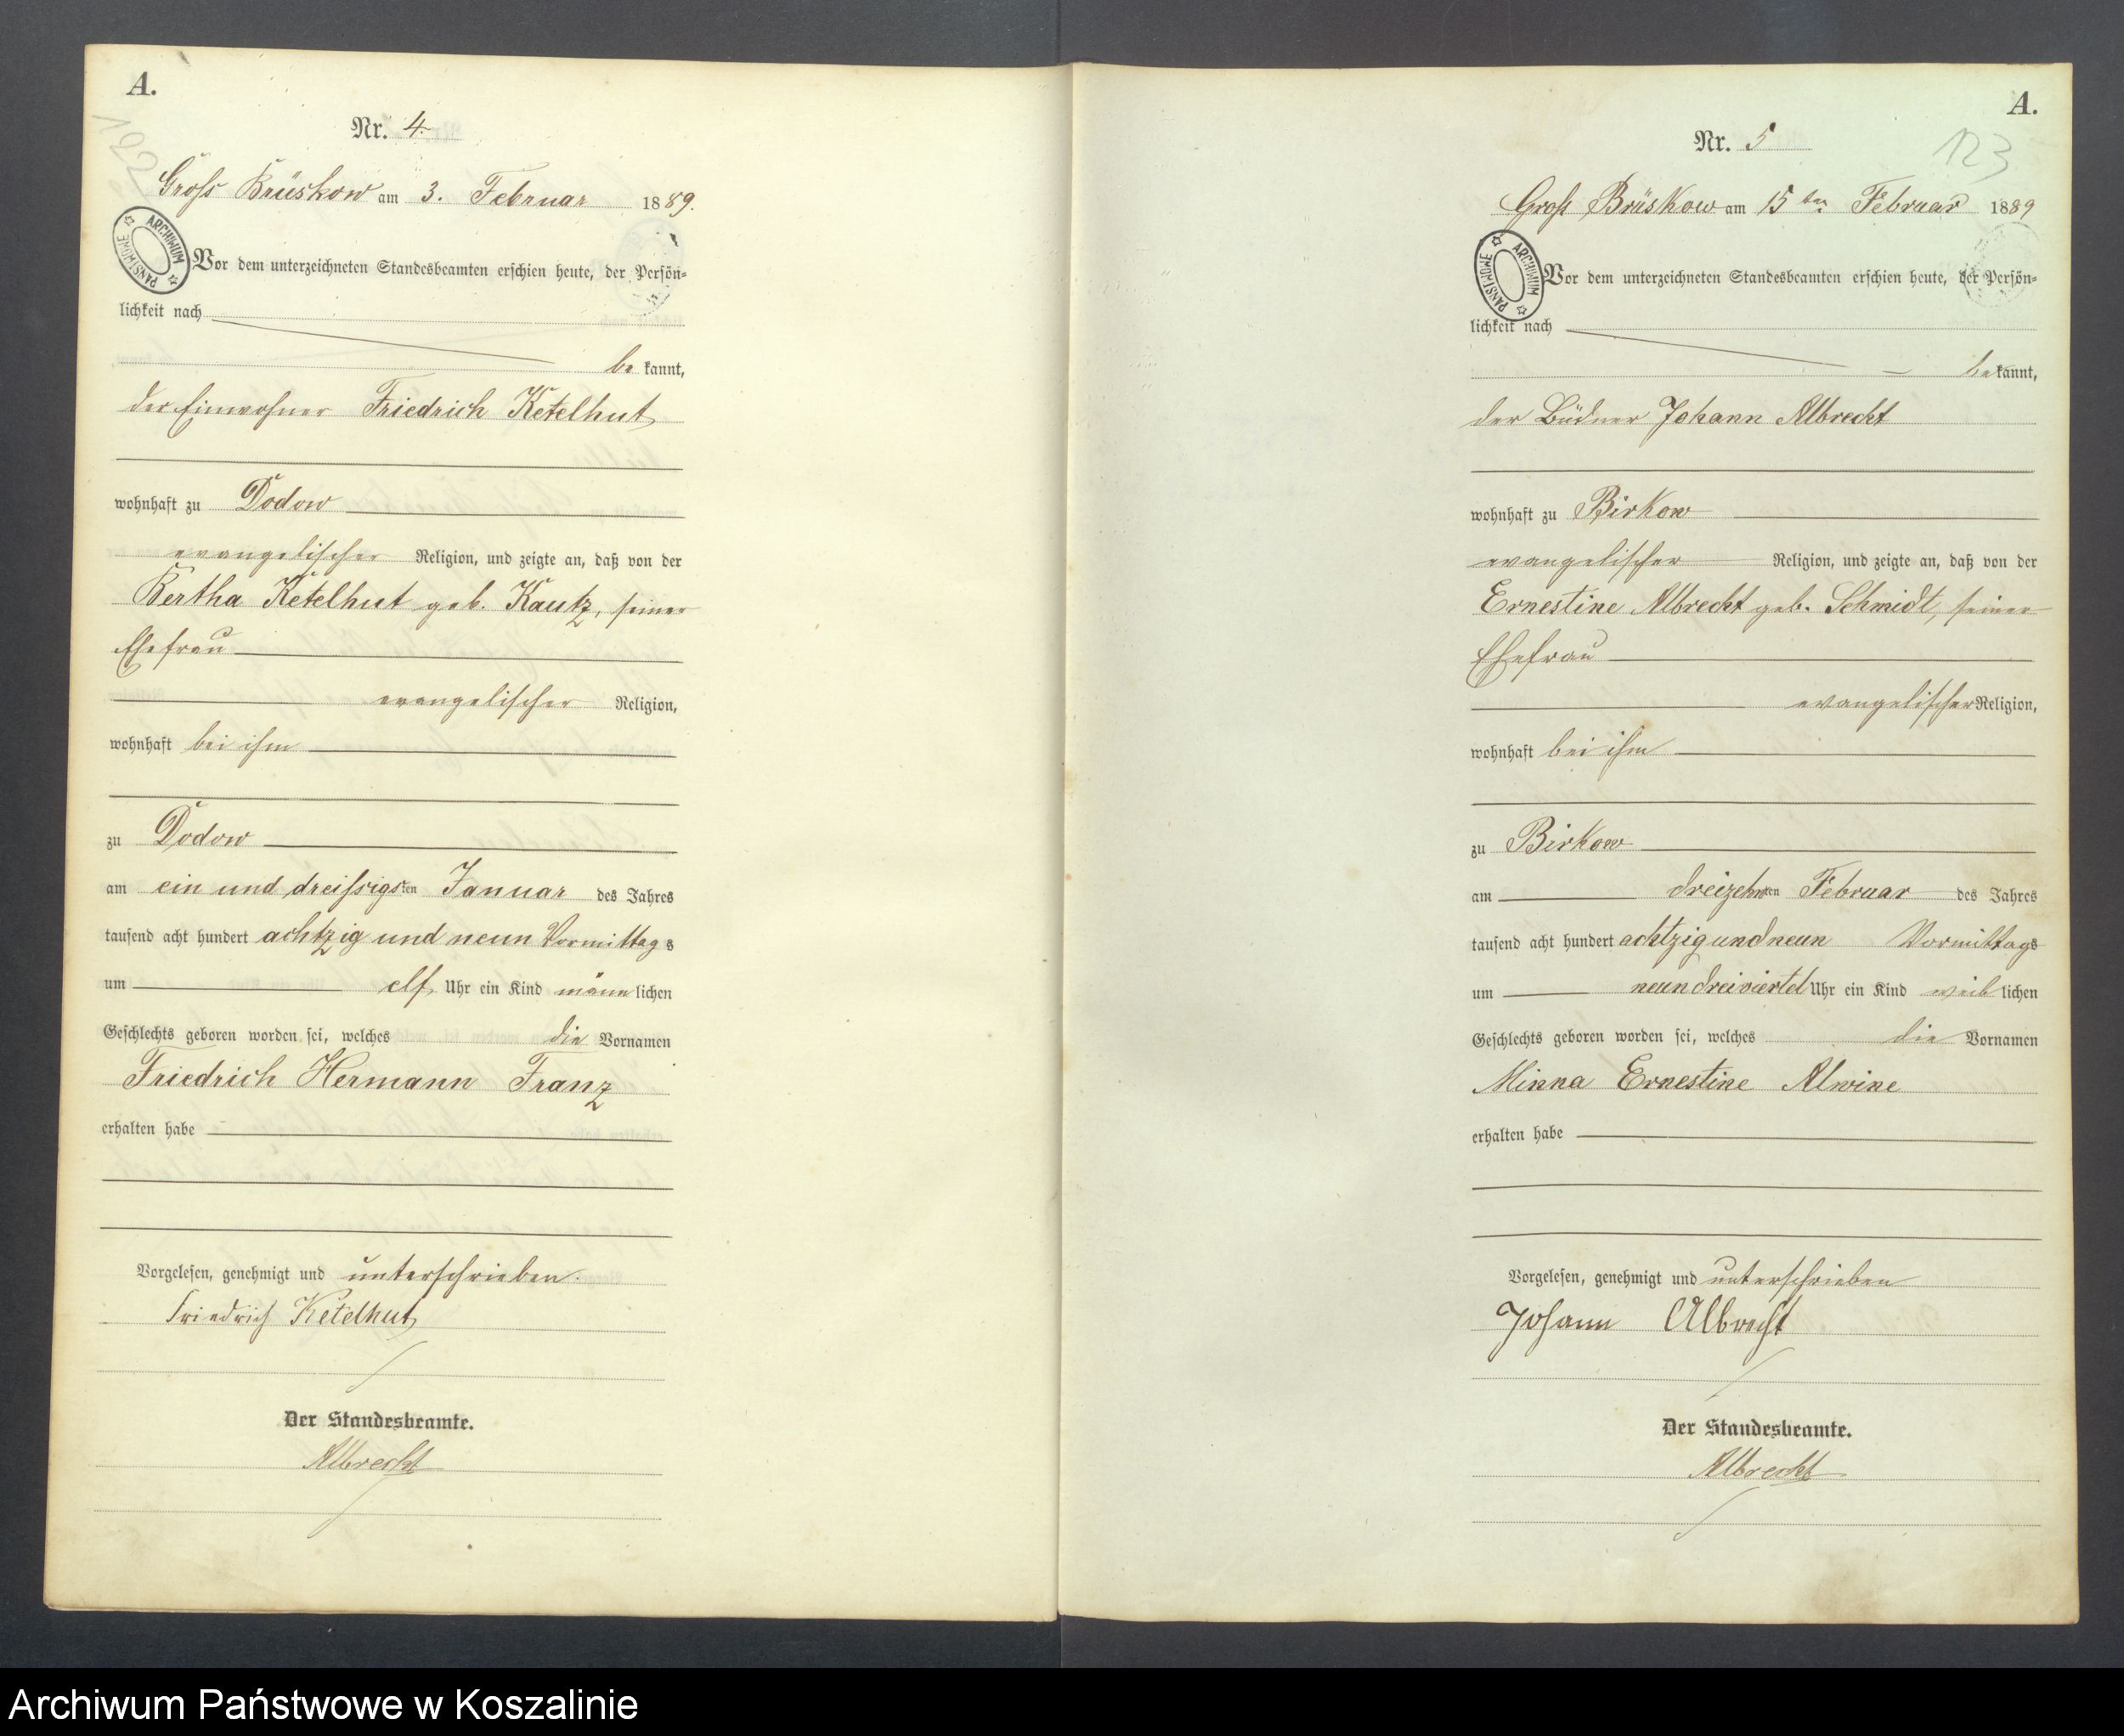 A.
122
Nr. 4.
Gross Brüskow am 3. Februar 1889.
ARCHIWUM PAŃSTWOWE
Vor dem unterzeichneten Standesbeamten erschien heute, der Persön-
lichkeit nach
be kannt,
der Einwohner Friedrich Ketelhut
wohnhaft zu Dodow
evangelischer Religion, und zeigte an, daß von der
Bertha Ketelhut geb. Kautz, seiner
Ehefrau
evangelischer Religion,
wohnhaft bei ihm
zu Dodow
am ein und dreissigsten Januar des Jahres
tausend acht hundert achtzig und neun Vormittags
um elf Uhr ein Kind männlichen
Geschlechts geboren worden sei, welches die Vornamen
Friedrich Hermann Franz
erhalten habe
Vorgelesen, genehmigt und unterschrieben.
Friedrich Ketelhut
Der Standesbeamte.
Albrecht
A.
123
Nr. 5
Groß Brüskow am 15ten Februar 1889
ARCHIWUM PAŃSTWOWE
Vor dem unterzeichneten Standesbeamten erschien heute, der Persön-
lichkeit nach
bekannt,
der Büdner Johann Albrecht
wohnhaft zu Birkow
evangelischer Religion, und zeigte an, daß von der
Ernestine Albrecht geb. Schmidt, seiner
Ehefrau
evangelischer Religion,
wohnhaft bei ihm
zu Birkow
am dreizehnten Februar des Jahres
tausend acht hundert achtzigundneun Vormittags
um neundreiviertel Uhr ein Kind weiblichen
Geschlechts geboren worden sei, welches die Vornamen
Minna Ernestine Alwine
erhalten habe
Vorgelesen, genehmigt und unterschrieben
Johann Albrecht
Der Standesbeamte.
Albrecht
Archiwum Państwowe w Koszalinie